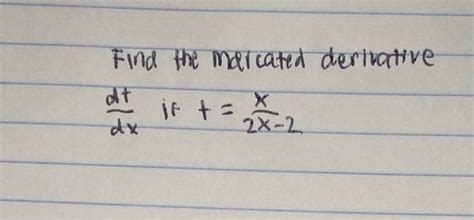 Find the marcated derivative
dt/dx if t = x/2x-2